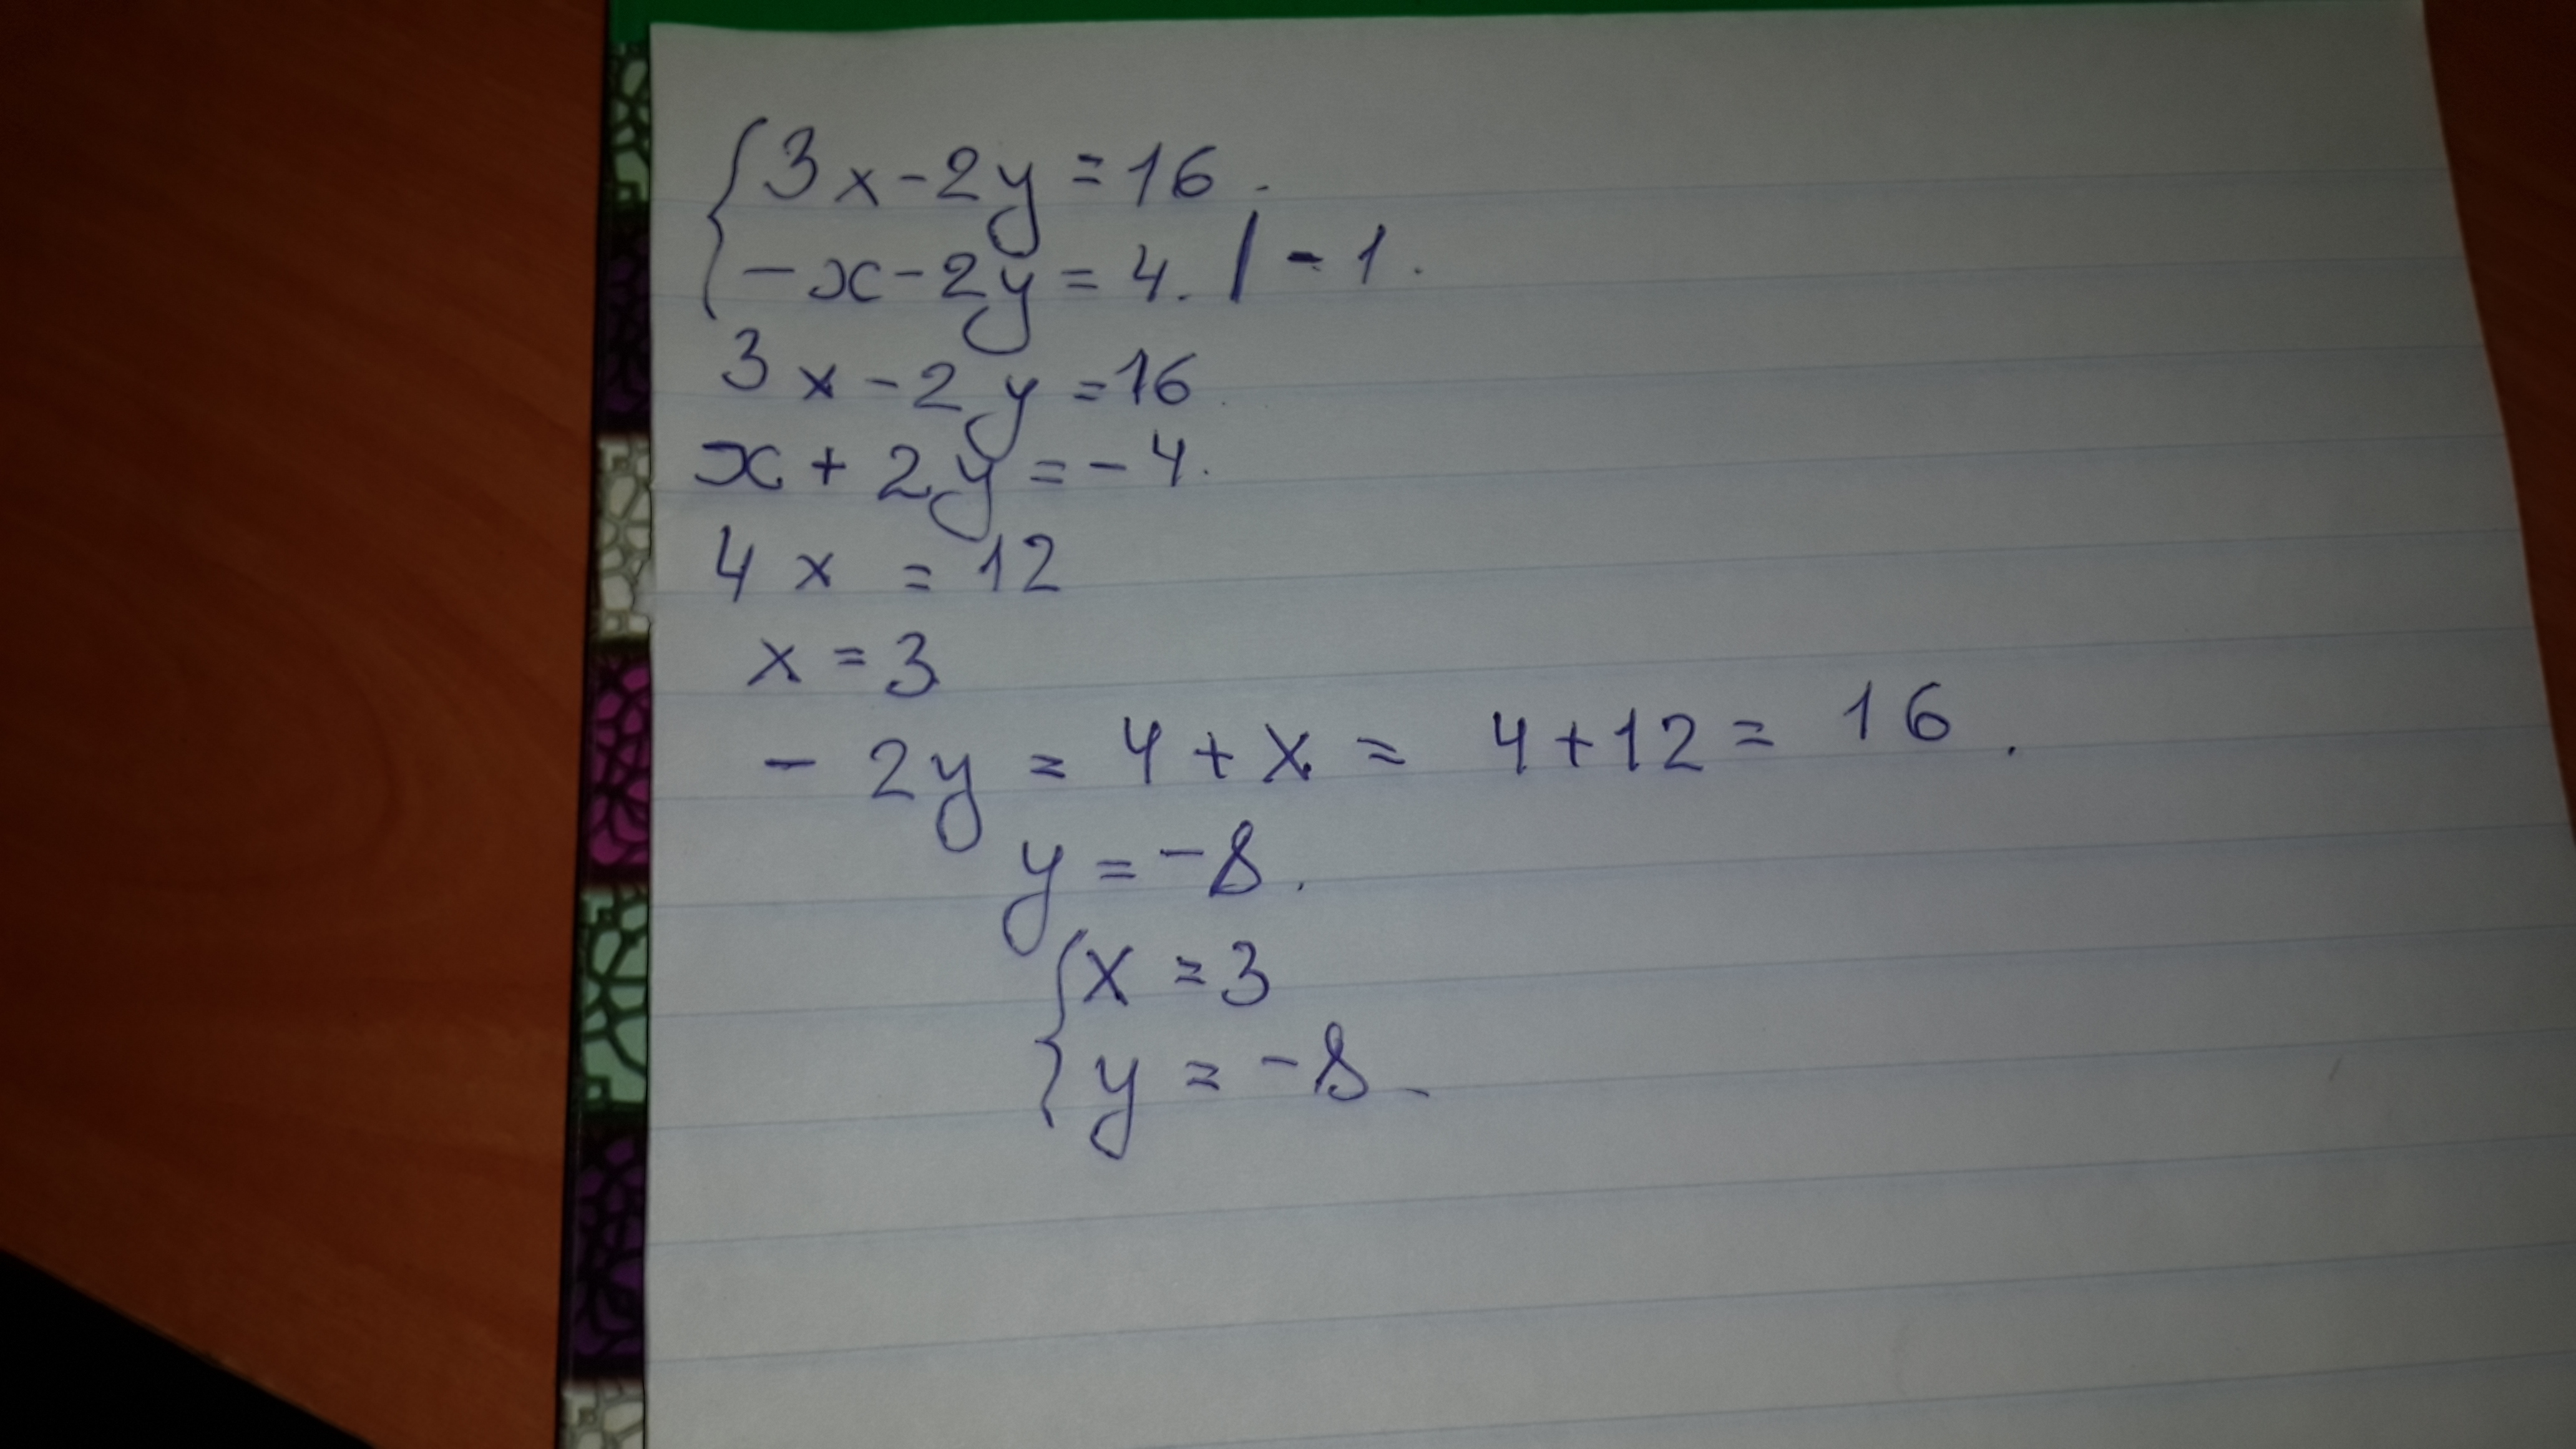 {3x-2y=16.
{-x-2y=4. | -1.
3x-2y=16
x+2y=-4.
4x = 12
x=3
-2y=4+x=4+12=16.
y=-8.
{x=3
{y=-8.